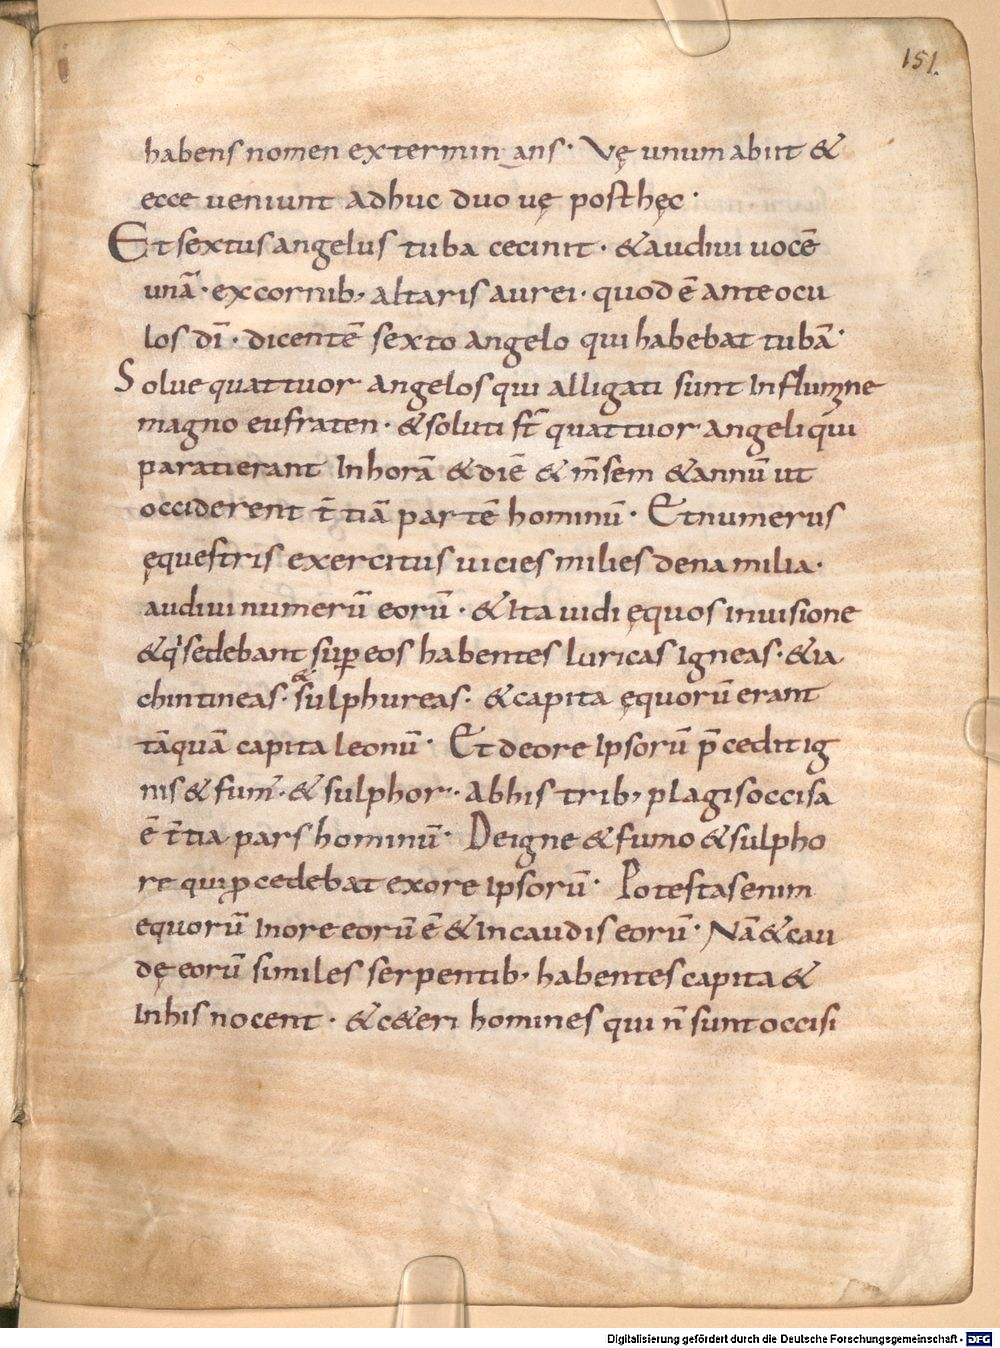 151.
habens nomen exterminans· Vę unum abiit &
ecce ueniunt adhuc duo uę post hęc·
Et sextus angelus tuba cecinit· & audiui uocē
unā· ex cornib; altaris aurei· quod ē ante ocu
los dī· dicentē sexto angelo qui habebat tubā·
Solue quattuor angelos qui alligati sunt In flumine
magno eufraten· & soluti st̄ quattuor angeli qui
parati erant In horā & diē & m̄sem & annū ut
occiderent t̄tiā partē hominū· Et numerus
ęquestris exercitus uicies milies dena milia·
audiui numerū eorū· & Ita uidi ęquos in uisione
& q' sedebant suꝑ eos habentes luricas Igneas· & ia
chintineas· & sulphureas· & capita ęquorū erant
tāquā capita leonū· Et de ore Ipsorū p̄cedit ig
nis & fum'· & sulphor· Ab his trib; plagis occisa
ē t̄tia pars hominū· De igne & fumo & sulpho
re qui ꝓcedebat ex ore Ipsorū· Potestas enim
equorū In ore eorū ē & In caudis eorū· Nā & cau
dę eorū similes serpentib; habentes capita &
In his nocent· & c&eri homines qui n̄ sunt occisi
Digitalisierung gefördert durch die Deutsche Forschungsgemeinschaft - DFG